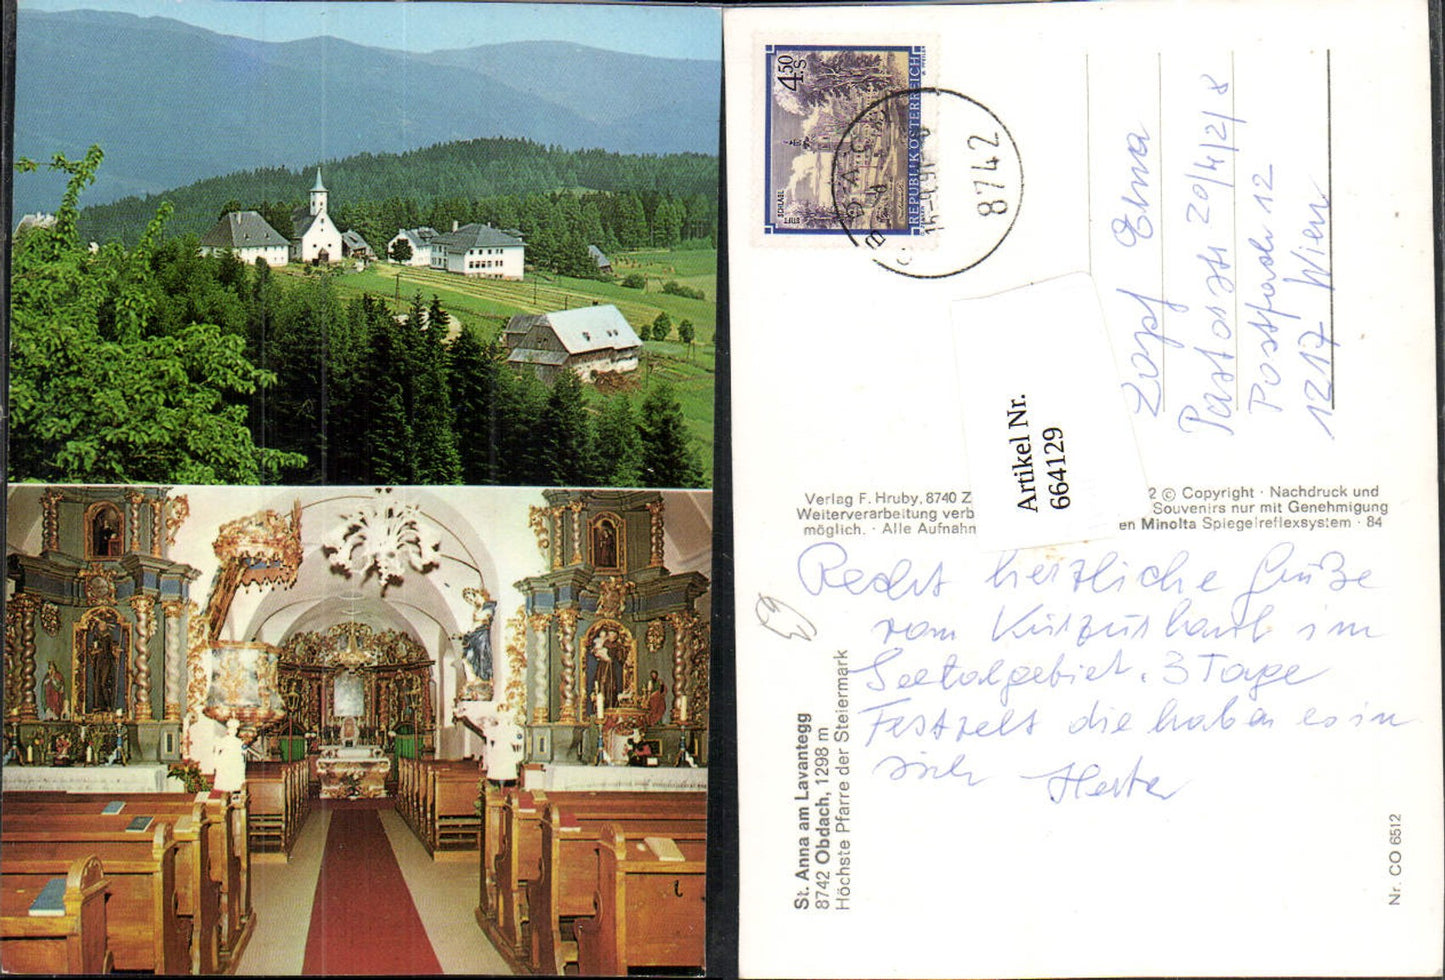 4.50
S
REPUBLIK ÖSTERREICH
STIFT
SCHLÄGL
8742
Artikel Nr.
664129
Zopf Erna
Pastorstr 20/4/2/8
Postfach 12
1217 Wien
Verlag F. Hruby, 8740 Z
Weiterverarbeitung verb
möglich. · Alle Aufnahm
2 © Copyright · Nachdruck und
Souvenirs nur mit Genehmigung
en Minolta Spiegelreflexsystem · 84
Recht herzliche Grüße
vom Kurzurlaub im
Seetalgebiet. 3 Tage
Festzelt die haben es in
sich Herta
St. Anna am Lavantegg
8742 Obdach, 1298 m
Höchste Pfarre der Steiermark
Nr. CO 6512